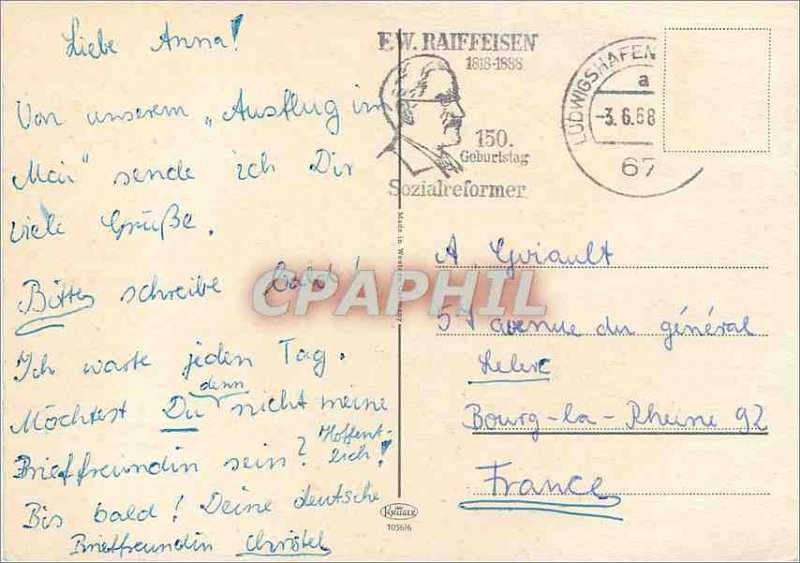 Liebe Anna!
Von unserem „Ausflug im
Mai" sende ich Dir
viele Grüße.
Bitte schreibe bald!
Ich warte jeden Tag.
Möchtest Du denn nicht meine
Brieffreundin sein? Hoffent-
lich!
Bis bald! Deine deutsche
Brieffreundin Christel
F.W. RAIFFEISEN
1818-1888
150.
Geburtstag
Sozialreformer
LUDWIGSHAFEN
a
-3.6.68
67
Made in Western Germany
CPAPHIL
A. Guiault
57 avenue du général
Leclerc
Bourg-la-Rheine 92
France
KRÜGER
1056/6